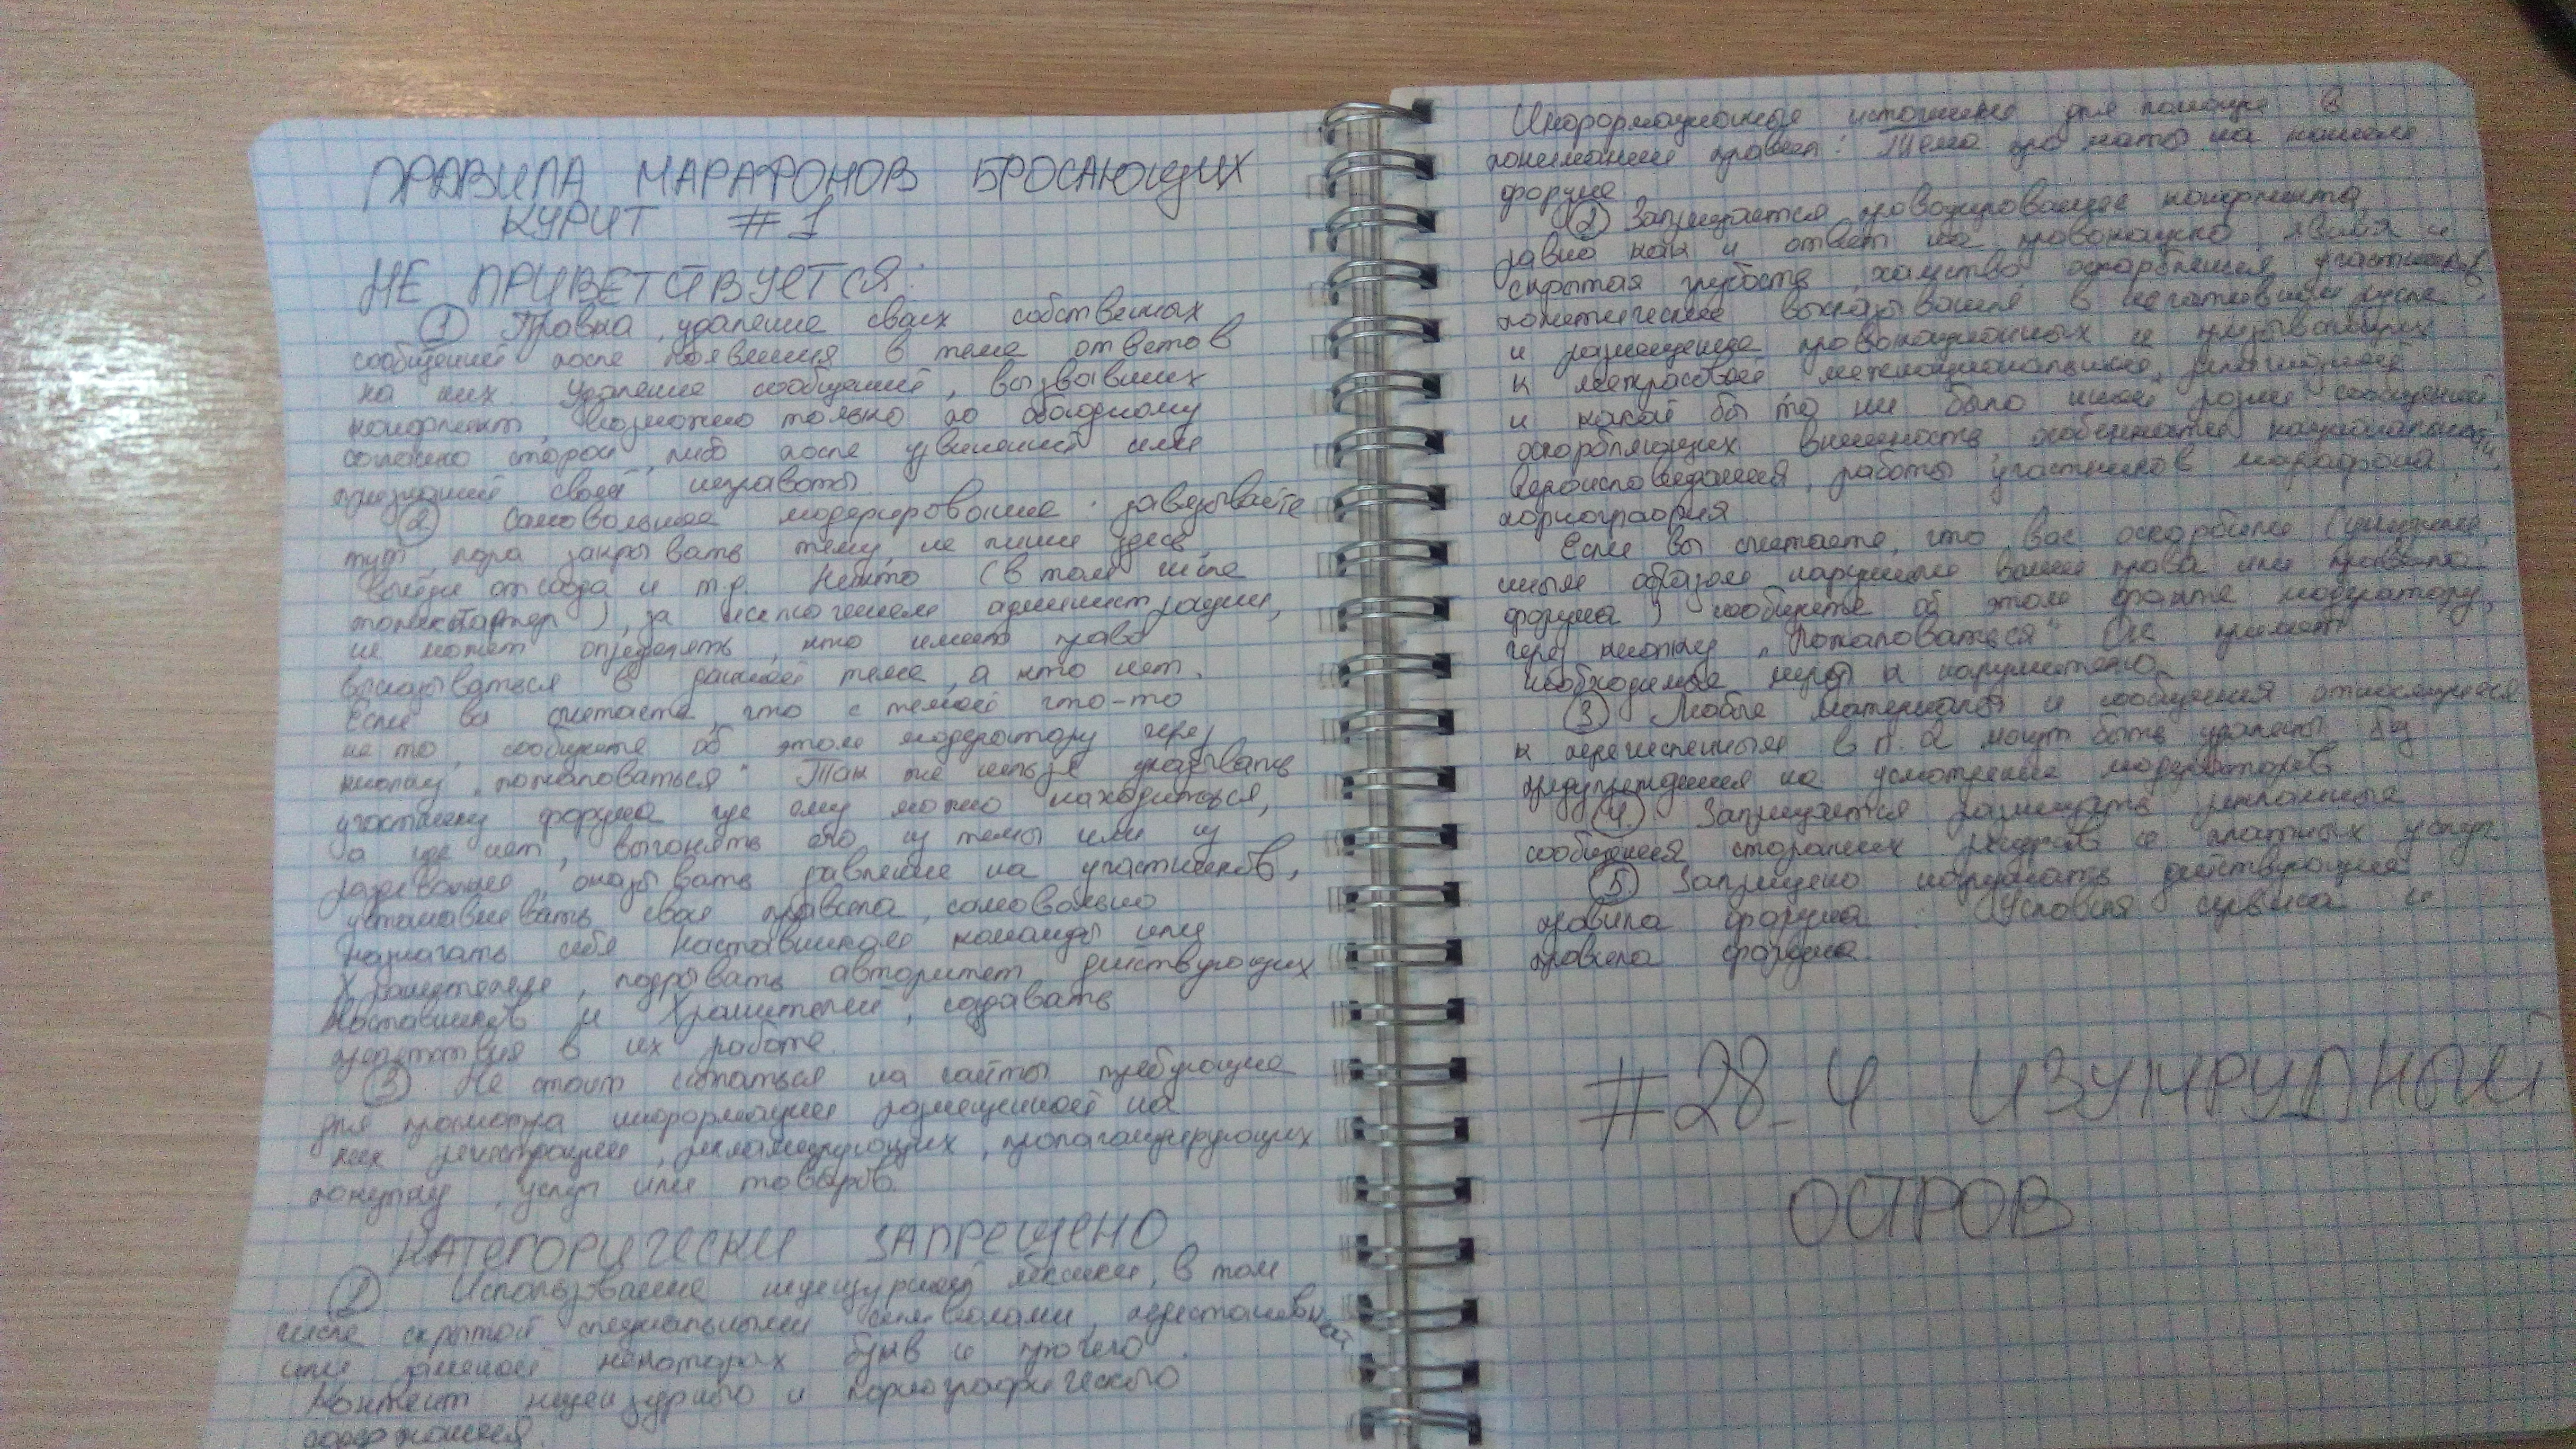 ПРАВИЛА МАРАФОНОВ БРОСАЮЩИХ
КУРИТ #1
НЕ ПРИВЕТСТВУЕТСЯ:
① Правка, удаление своих собственных
сообщений после появления в теме ответов
на них. Удаление сообщений, вызвавших
конфликт, возможно только по обоюдному
согласию сторон, либо после извинений или
признаний своей неправоты.
② Самовольное модерирование: завязывайте
тут, пора закрывать тему, не пиши здесь,
выйди отсюда и т.д. Никто (в том числе
топикстартер), за исключением администрации,
не может определять, кто имеет право
высказываться в данной теме, а кто нет.
Если вы считаете, что с темой что-то
не то, сообщите об этом модератору через
кнопку „пожаловаться". Так же нельзя указывать
участнику форума где ему можно находиться,
а где нет, выгонять его из темы или из
раздевалки, оказывать давление на участников,
устанавливать свои правила, самовольно
назначать себя Наставником команды или
Хранителем, подрывать авторитет действующих
Наставников и Хранителей, создавать
препятствия в их работе.
③ Не стоит ссылаться на сайты требующие
для просмотра информации размещенной на
них регистрации, рекламирующих, пропагандирующих
покупку, услуг или товаров.
КАТЕГОРИЧЕСКИ ЗАПРЕЩЕНО
① Использование нецензурной лексики, в том
числе скрытой специальными символами, перестановкой
или заменой некоторых букв и прочего.
Контент нецензурного и порнографического
содержания.
Информационные источники для помощи в
понимании правил: Тема про маты на нашем
форуме
② Запрещается провоцирование конфликта,
равно как и ответ на провокацию, явная и
скрытая грубость, хамство, оскорбления участников,
политические высказывания в негативном русле
и размещение провокационных и призывающих
к межрасовой межнациональной, религиозной
и какой бы то ни было иной розни сообщений,
оскорбляющих внешность, особенности национальности,
вероисповедания, работы участников марафона,
порнография.
Если вы считаете, что вас оскорбили (унизили,
иным образом нарушили ваши права или правила
форума) сообщите об этом факте модератору,
через кнопку „Пожаловаться" Он примет
необходимые меры к нарушителю.
③ Любые материалы и сообщения относящиеся
к перечисленным в п. 2 могут быть удалены без
предупреждения на усмотрение модераторов
④ Запрещается размещать рекламные
сообщения сторонних ресурсов и платных услуг
⑤ Запрещено нарушать действующие
правила форума: Условия сервиса и
правила форума.
#28_4 ИЗУМРУДНЫЙ
ОСТРОВ